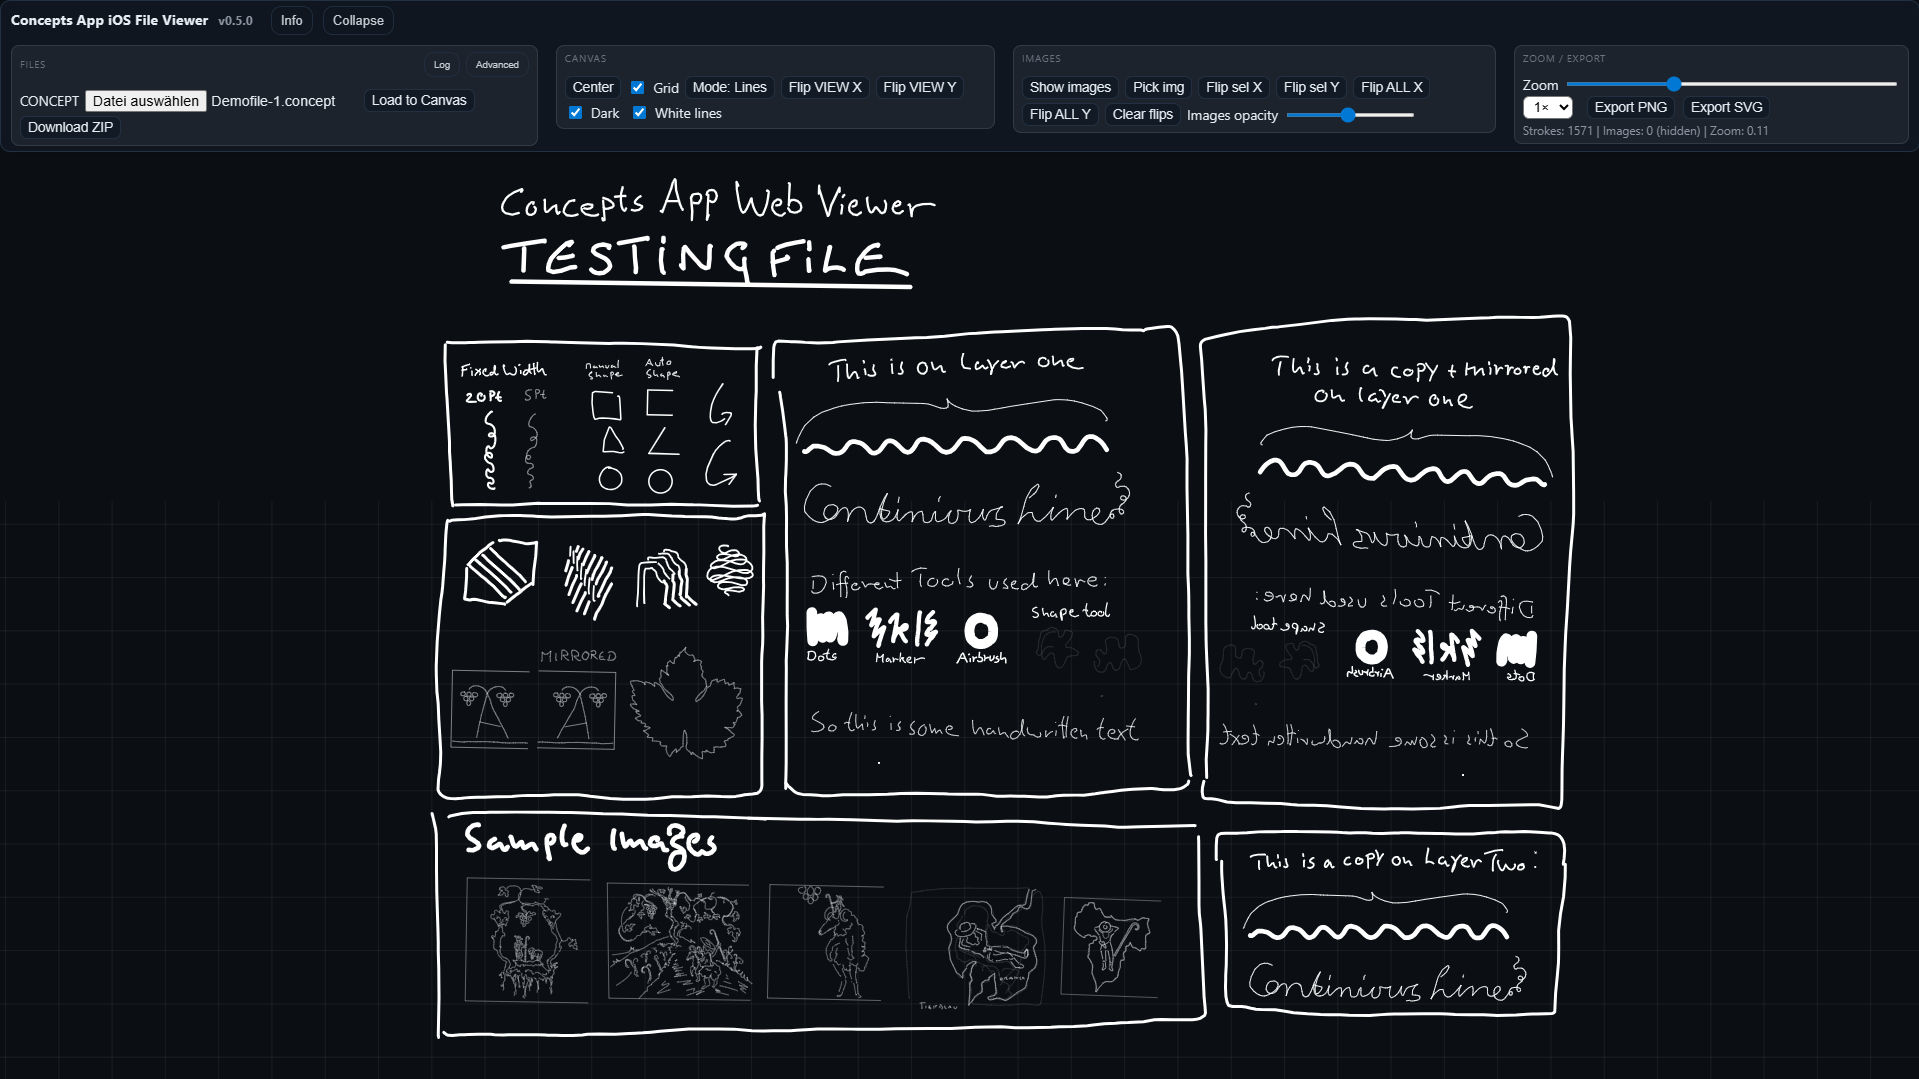 Concepts App iOS File Viewer v0.5.0 Info Collapse
FILES Log Advanced
CONCEPT Datei auswählen Demofile-1.concept Load to Canvas
Download ZIP
CANVAS
Center Grid Mode: Lines Flip VIEW X Flip VIEW Y
Dark White lines
IMAGES
Show images Pick img Flip sel X Flip sel Y Flip ALL X
Flip ALL Y Clear flips Images opacity
ZOOM / EXPORT
Zoom
1× Export PNG Export SVG
Strokes: 1571 | Images: 0 (hidden) | Zoom: 0.11
Concepts App Web Viewer
TESTING FiLE
Fixed Width
20Pt 5Pt
manual
shape
Auto
Shape
MIRRORED
This is on Layer one
Continiours Line
Different Tools used here:
Shape tool
Dots Marker Airbrush
So this is some handwritten text
This is a copy + mirrored
on layer one
Continiours Line
Different Tools used here:
Shape tool
Airbrush Marker Dots
So this is some handwritten text
Sample Images
This is a copy on Layer Two:
Continiours Line